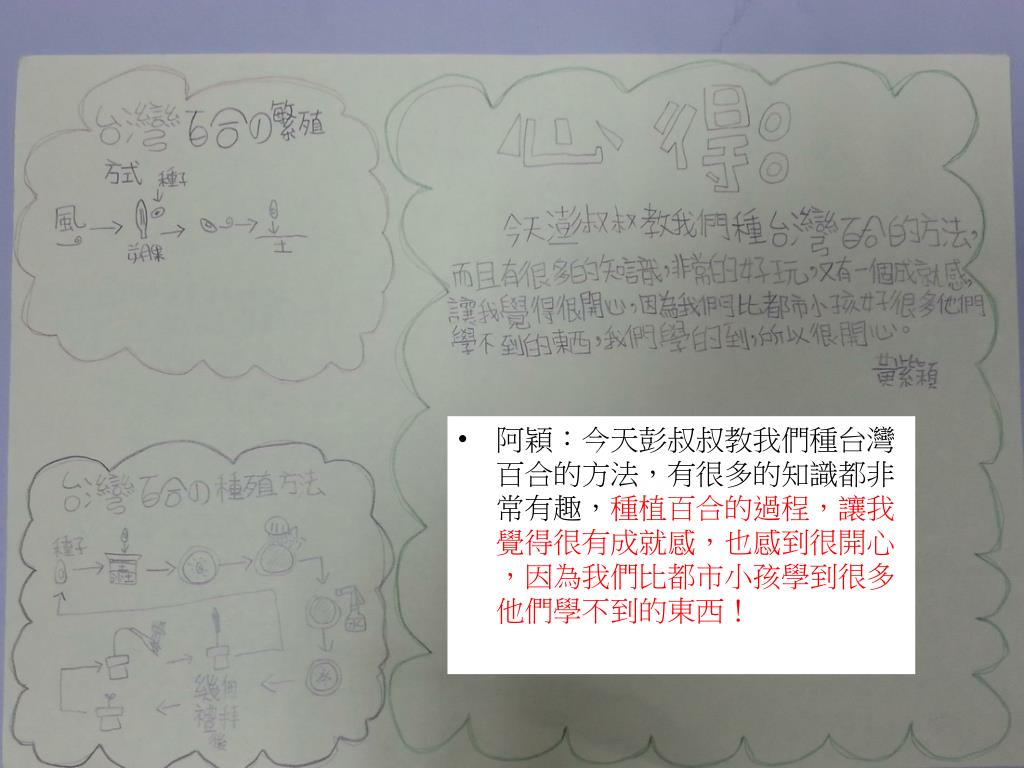 台灣百合の繁殖
方式
種子
風
蒴果
土
心得:
今天澎叔叔教我們種台灣百合的方法,
而且有很多的知識,非常的好玩,又有一個成就感,
讓我覺得很開心,因為我們比都市小孩好很多他們
學不到的東西,我們學的到,所以很開心。
黃紫穎
台灣百合の種殖方法
種子
幾個
禮拜
後
• 阿穎：今天彭叔叔教我們種台灣
百合的方法，有很多的知識都非
常有趣，種植百合的過程，讓我
覺得很有成就感，也感到很開心
，因為我們比都市小孩學到很多
他們學不到的東西！